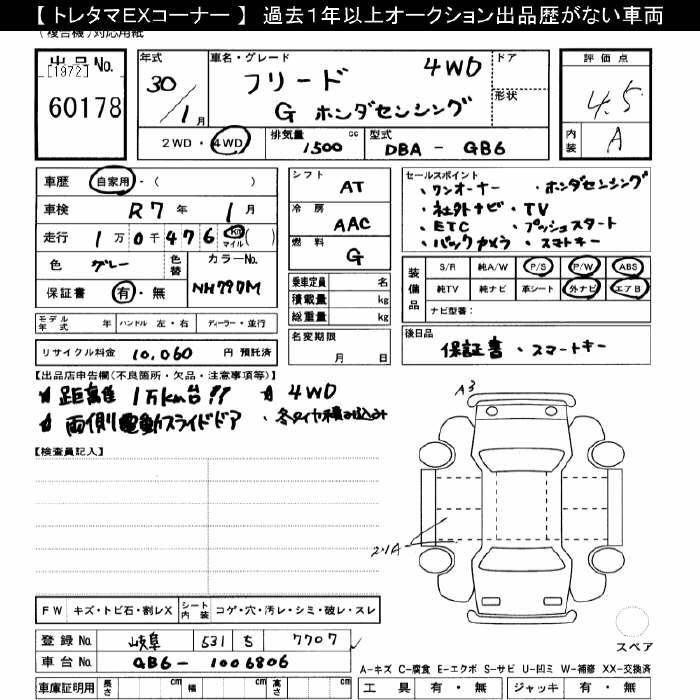 【 トレタマEXコーナー 】 過去1年以上オークション出品歴がない車両
(複合機)対応用紙
出品No.
[1972]
60178
年式
30
/1月
車名・グレード
フリード 4WD
G ホンダセンシング
ドア
形状
評価点
4.5
内装 A
2WD・4WD
排気量 1500 cc
型式 DBA - GB6
車歴 自家用・( )
車検 R7年 1月
走行 1万0千476 Km マイル ( )
色 グレー
色替
カラーNo.
NH797M
保証書 有・無
シフト AT
冷房 AAC
燃料 G
乗車定員 名
積載量 kg
総重量 kg
セールスポイント
・ワンオーナー ・ホンダセンシング
・社外ナビ ・TV
・ETC ・プッシュスタート
・バックカメラ ・スマートキー
装備品
S/R 純A/W P/S P/W ABS
純TV 純ナビ 革シート 外ナビ エアB
ナビ型番:
モデル年式 年 ハンドル 左・右 ディーラー・並行
名変期限
月 日
後日品
保証書・スマートキー
リサイクル料金 10,060 円 預託済
【出品店申告欄(不良箇所・欠品・注意事項等)】
★ 距離 1万km台!! ★ 4WD
★ 両側電動スライドドア ・冬タイヤ積み込み
【検査員記入】
A3
FW キズ・トビ石・割レX
シート内装 コゲ・穴・汚レ・シミ・破レ・スレ
登録No. 岐阜 531 ち 7707
車台No. GB6-1006806
スペア
A-キズ C-腐食 E-エクボ S-サビ U-凹ミ W-補修 XX-交換済
車庫証明用 長さ cm 幅 cm 高さ cm
工具 有・無 ジャッキ 有・無